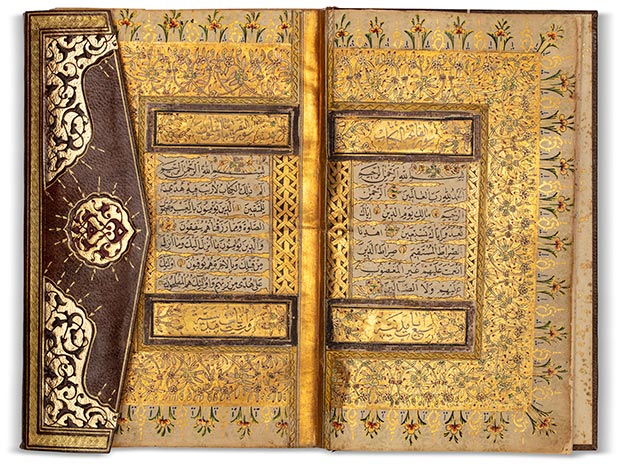 بسم الله الرحمن الرحيم
الحمد لله رب العالمين الرحمن
الرحيم مالك يوم الدين اياك
نعبد واياك نستعين اهدنا
الصراط المستقيم صراط الذين
انعمت عليهم غير المغضوب
عليهم ولا الضالين
بسم الله الرحمن الرحيم
الم ذلك الكتاب لا ريب فيه هدى
للمتقين الذين يؤمنون بالغيب ويقيمون
الصلوة ومما رزقناهم ينفقون
والذين يؤمنون بما انزل اليك وما انزل
من قبلك وبالاخرة هم يوقنون اولئك
على هدى من ربهم واولئك هم المفلحون